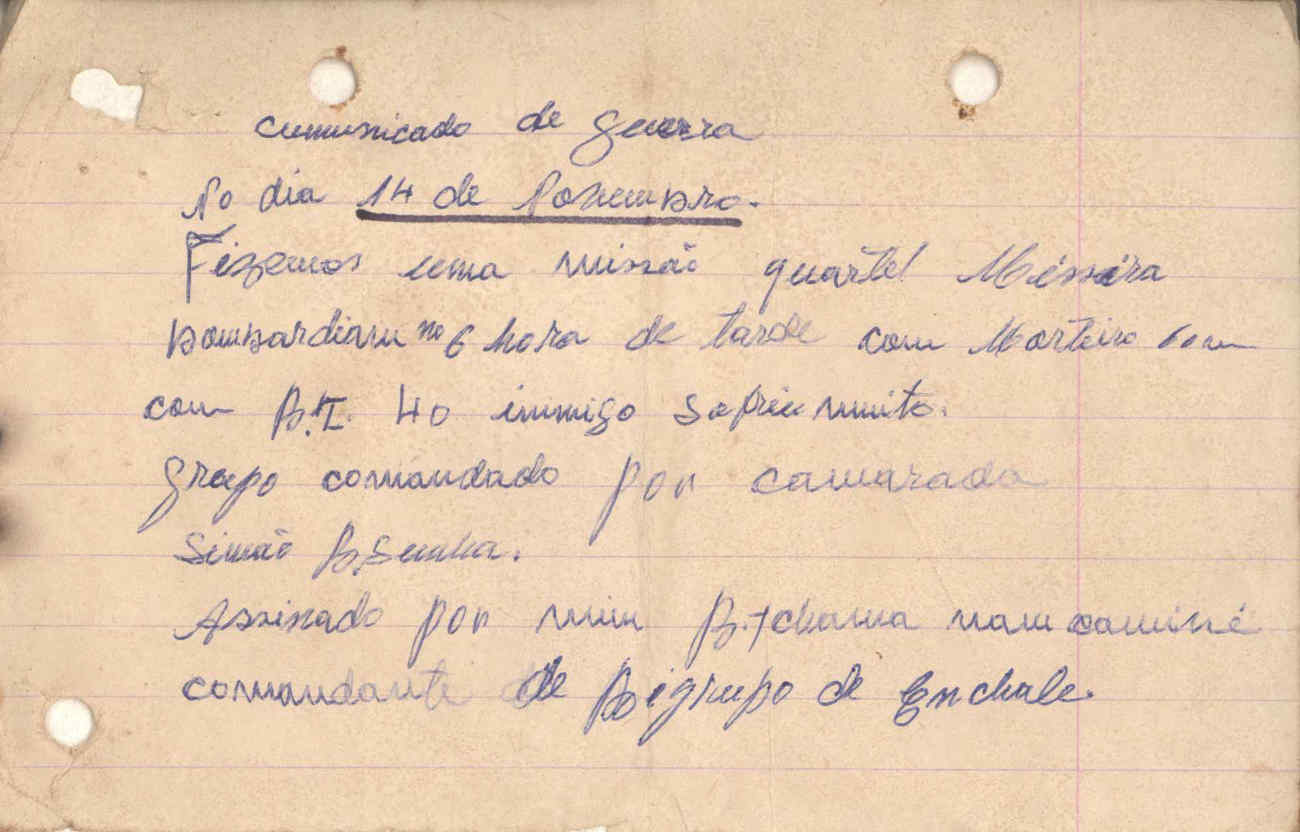 cumunicado de guerra
No dia 14 de Novembro.
Fizemos uma missão quartel Missira
bombardiam no 6 hora de tarde com Morteiro
com B.I. 40 inmigo sofriu muito.
grupo comandado por camarada
Simão
Assinado por mim B. tchama nam
comandante de Bigrupo de Enchale.